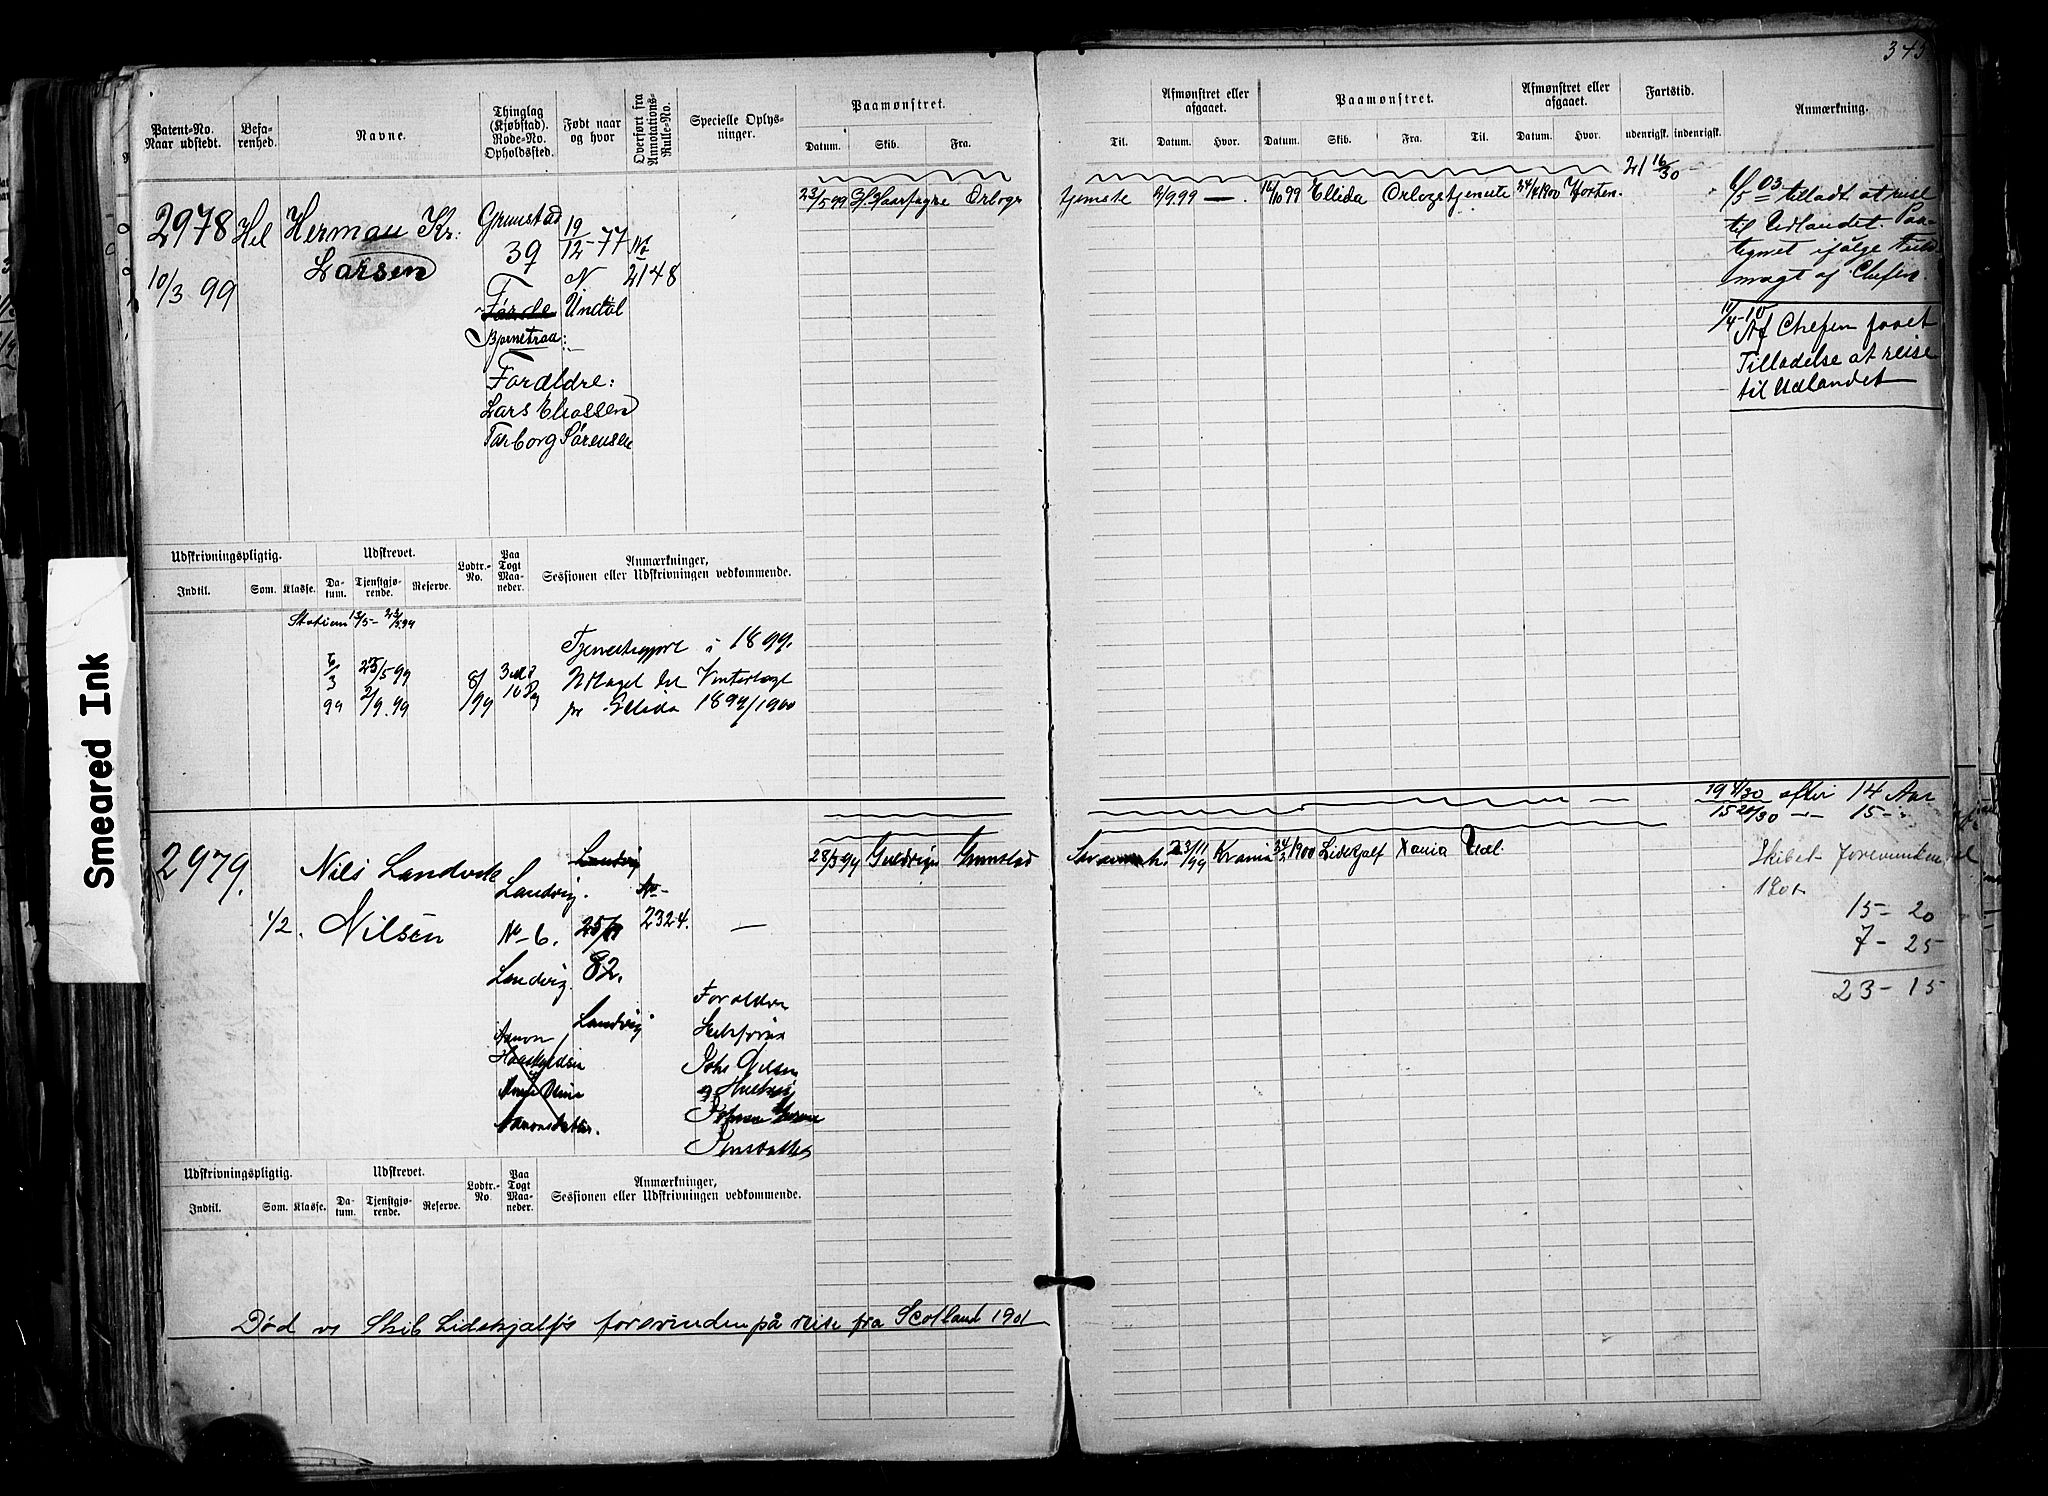 345
Patent-No.
Naar udstedt.
Befarenhed.
Navne.
Thinglag
(Kjøbstad).
Rode-No.
Opholdssted.
Født naar
og hvor
Overført fra
Annotations-
Rulle-No.
Specielle Oplysninger.
Paamønstret.
Datum. Skib. Fra.
Til.
Afmønstret eller
afgaaet.
Datum. Hvor.
Paamønstret.
Datum. Skib. Fra. Til.
Afmønstret eller
afgaaet.
Datum. Hvor.
Fartstid.
udenrigsk. indenrigsk.
Anmærkning.
21 16/30
2978 Hel Herman Kr:
Larsen
10/3 99
Grimstad
39
F
Førde
Bjornstraa:
Forældre:
Lars Eliassen
Tarborg Sørensen
19/12-77
N
Undal
No
2148
23/5 99 H. Haarfagre Orlogs
tjeneste 2/9.99 — 16/10 99 Ellida Orlogstjeneste 24/4 1900 Horten
6/5 03 tilladt at reise
til Udlandet. Paategnet
ifølge Fuldmagt
af Chefen.
11/4-10
Af Chefen faaet
Tilladelse at reise
til Udlandet
Udskrivningspligtig.
Indtil. Søm. Klasse.
Udskrevet.
Datum. Tjenstgjørende. Reserve.
Lodtr.-No.
Paa Togt Maaneder.
Anmærkninger,
Sessionen eller Udskrivningen vedkommende.
Station 13/5- 23/5 99
6/3 99
23/5 99
2/9.99
81/99
3 md
10 Dg
i 1899.
det Vintertogt
pr Ellida 1899/1900
2979.
1/2.
Nils Landvik
Nilsen
Landvig.
No 6.
Landvig.
Landvig
25/11
82.
Landvig
No
2324.
—
Aamon
Olsen
Aamonsdatter.
Forældre
Jens Nilsen
Jensdatter
28/3 99 Guldregn Grimstad
23/11 99 Krania 24/3 1900 Lidskjalf Xania Udl.
19 4/30 efter 14 Aar
15 20/30 -"- 15 - "
Skibet forsvunden
1901
15- 20
7- 25
23- 15
Udskrivningspligtig.
Indtil. Søm. Klasse.
Udskrevet.
Datum. Tjenstgjørende. Reserve.
Lodtr.-No.
Paa Togt Maaneder.
Anmærkninger,
Sessionen eller Udskrivningen vedkommende.
Død v Skib Lidskjalfs forsvinden på reise fra Scotland 1901
Smeared Ink